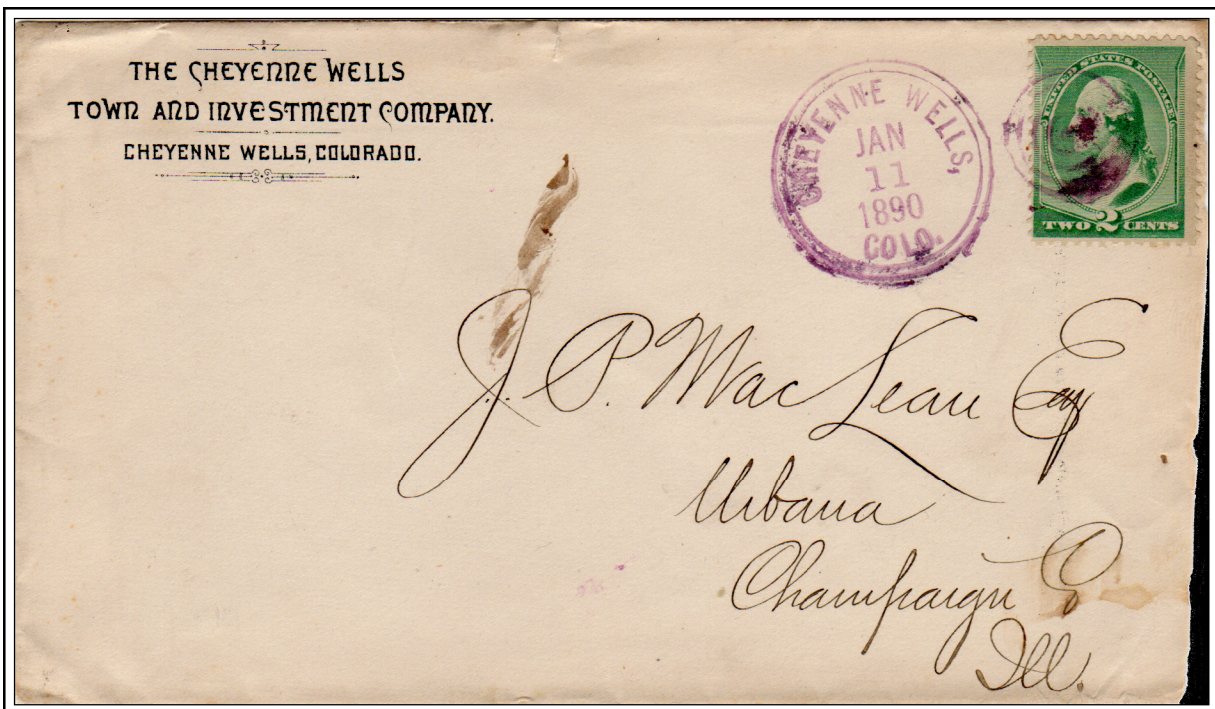 THE CHEYENNE WELLS
TOWN AND INVESTMENT COMPANY.
CHEYENNE WELLS, COLORADO.
CHEYENNE WELLS,
JAN
11
1890
COLO.
UNITED STATES POSTAGE
TWO 2 CENTS
J. P. MacLean Esq
Urbana
Champaign Co
Ill.